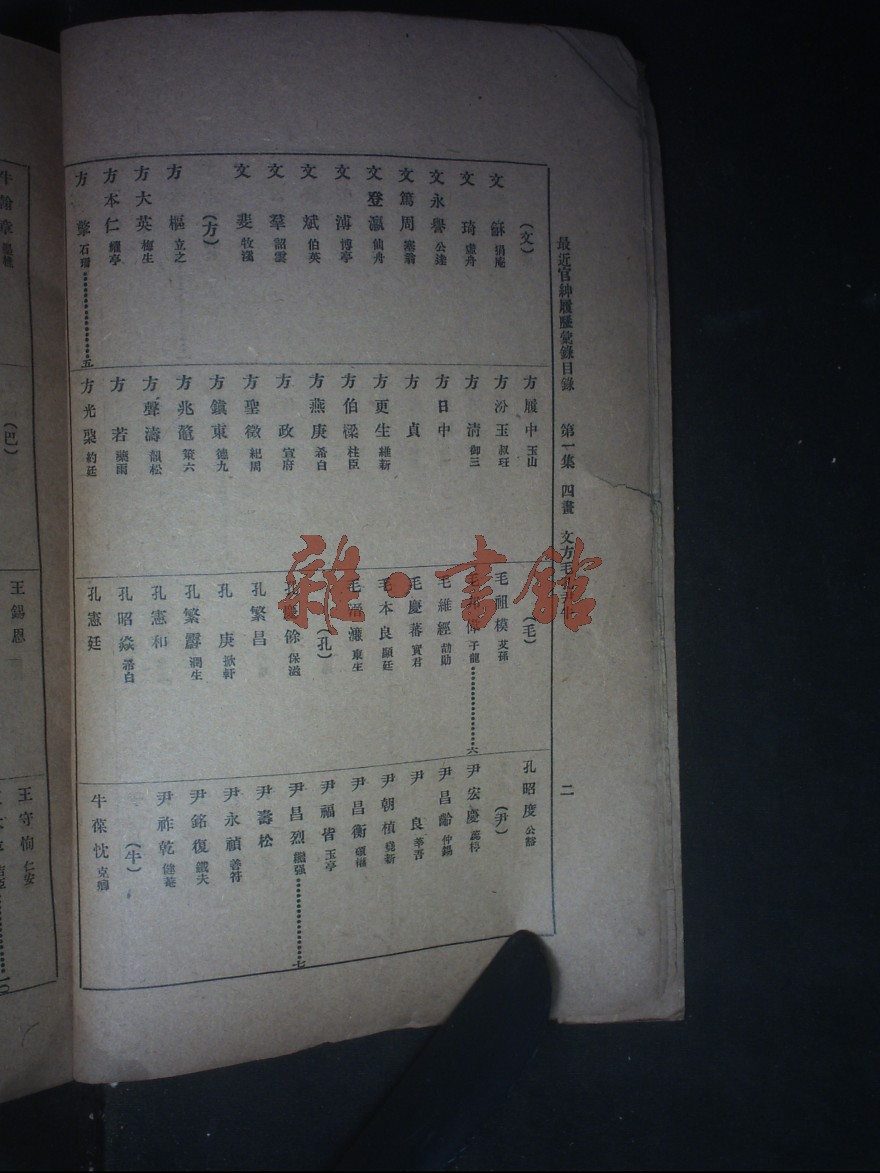 最近官紳履歷彙錄目錄 第一集 四畫 文方毛孔尹牛 二
(文)
文 穌
文 琦 虛舟
文永譽 公達
文篤周 塞翁
文登瀛 仙舟
文 溥 博亭
文 斌 伯英
文 羣 詔雲
文 斐 牧希
(方)
方 樞 立之
方大英 梅生
方本仁 耀亭
方 擎 石珊 五
方履中 玉山
方汾玉 叔玨
方 清 御三
方日中
方 貞
方更生 維新
方伯樑 柱臣
方燕庚 希白
方 政 宣府
方聖徵 紀周
方鎮東 德九
方兆鼇 策六
方聲濤 韻松
方 若 藥雨
方光棨 約廷
(毛)
毛祖模 艾孫
子龍 六
毛維經 劼勛
毛慶蕃 實君
毛本良 願廷
東生
(孔)
孔慶餘 保滋
孔繁昌
孔 庚 掀軒
孔繁霨 潤生
孔憲和
孔昭焱 希白
孔憲廷
孔昭度 公豁
(尹)
尹宏慶
尹昌齡 仲錫
尹 良
尹朝楨 堯新
尹昌衡 碩權
尹福皆 玉亭
尹昌烈 圖强 七
尹壽松
尹永禎 善符
尹銘復 鐵夫
尹祚乾 健菴
(牛)
牛葆忱 克卿
牛翰章
(巴)
王錫恩
王守恂 仁安
一〇
雜·書館